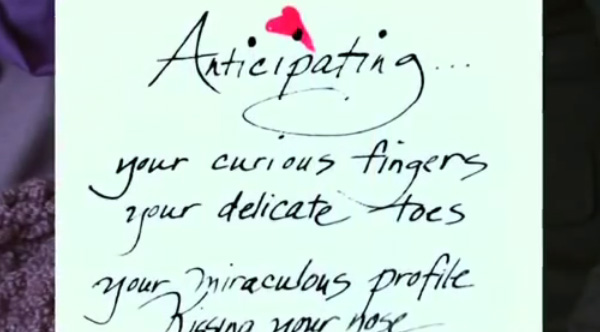 Anticipating...
your curious fingers
your delicate toes
your miraculous profile
Kissing your nose